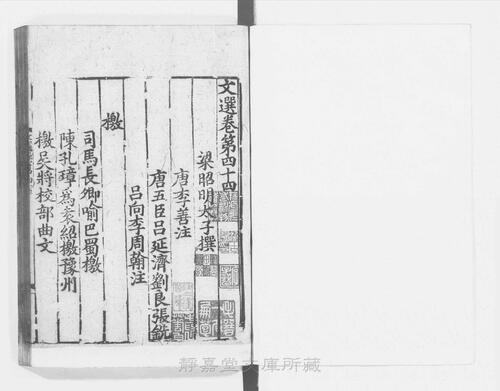 文選卷第四十四
梁昭明太子撰
唐李善注
唐五臣吕延濟劉良張銑
吕向李周翰注
檄
司馬長卿喻巴蜀檄
陳孔璋爲袁紹檄豫州
檄吴將校部曲文
靜嘉堂文庫所藏